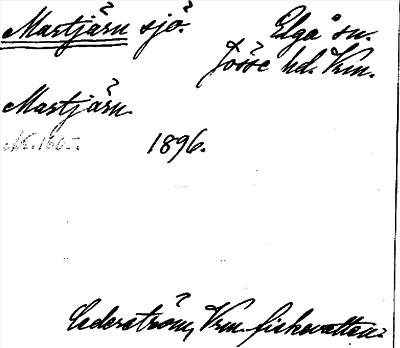 Martjärn sjö.
Elgå sn.
Jösse hd. Vrm.
Martjärn.
1896.
Cederström, Vrm. fiskevatten.